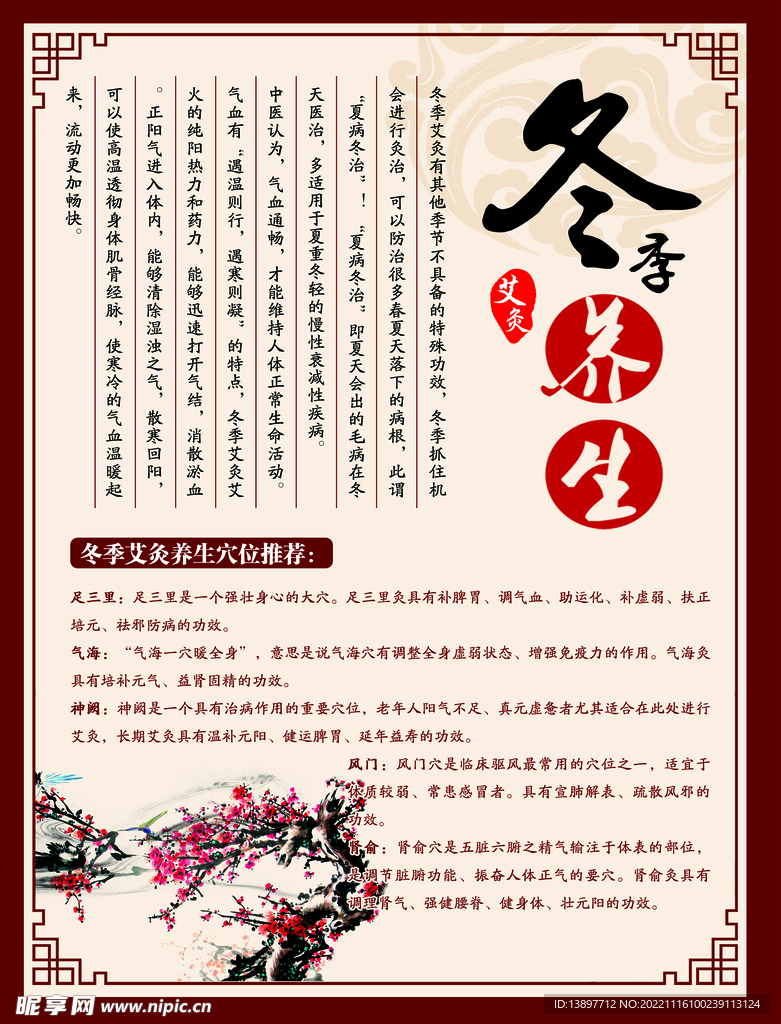 冬季
养生
艾灸
冬季艾灸有其他季节不具备的特殊功效，冬季抓住机
会进行灸治，可以防治很多春夏天落下的病根，此谓
“夏病冬治”！“夏病冬治”即夏天会出的毛病在冬
天医治，多适用于夏重冬轻的慢性衰减性疾病。
中医认为，气血通畅，才能维持人体正常生命活动。
气血有“遇温则行，遇寒则凝”的特点，冬季艾灸艾
火的纯阳热力和药力，能够迅速打开气结，消散淤血
。正阳气进入体内，能够清除湿浊之气，散寒回阳，
可以使高温透彻身体肌骨经脉，使寒冷的气血温暖起
来，流动更加畅快。
冬季艾灸养生穴位推荐：
足三里：足三里是一个强壮身心的大穴。足三里灸具有补脾胃、调气血、助运化、补虚弱、扶正
培元、祛邪防病的功效。
气海：“气海一穴暖全身”，意思是说气海穴有调整全身虚弱状态、增强免疫力的作用。气海灸
具有培补元气、益肾固精的功效。
神阙：神阙是一个具有治病作用的重要穴位，老年人阳气不足、真元虚惫者尤其适合在此处进行
艾灸，长期艾灸具有温补元阳、健运脾胃、延年益寿的功效。
风门：风门穴是临床驱风最常用的穴位之一，适宜于
体质较弱、常患感冒者。具有宣肺解表、疏散风邪的
功效。
肾俞：肾俞穴是五脏六腑之精气输注于体表的部位，
是调节脏腑功能、振奋人体正气的要穴。肾俞灸具有
调理肾气、强健腰脊、健身体、壮元阳的功效。
昵享网 www.nipic.cn
ID:13897712 NO:20221116100239113124